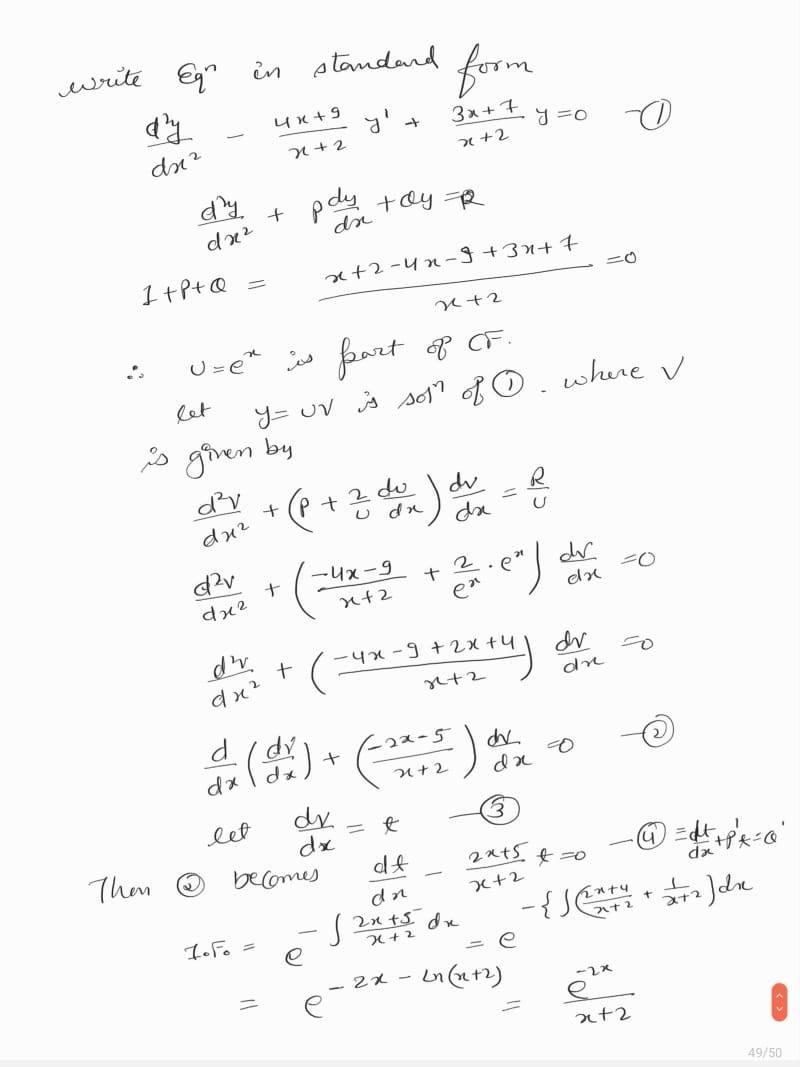 write Eqⁿ in standard form
d²y/dx² - (4x+9)/(x+2) y' + (3x+7)/(x+2) y=0 -①
d²y/dx² + P dy/dx + Qy = R
1+P+Q = (x+2-4x-9+3x+7)/(x+2) =0
∴ U=eˣ is part of CF.
let y= UV is solⁿ of ①. where V
is given by
d²V/dx² + (P + 2/U dU/dx) dv/dx = R/U
d²V/dx² + ((-4x-9)/(x+2) + 2/eˣ · eˣ) dv/dx =0
d²v/dx² + ((-4x-9+2x+4)/(x+2)) dv/dx =0
d/dx (dv/dx) + ((-2x-5)/(x+2)) dv/dx =0 -②
let dv/dx = t -③
Then ② becomes dt/dx - (2x+5)/(x+2) t=0 -④ ≡ dt/dx +P't=Q'
I.F. = e^(-∫ (2x+5)/(x+2) dx) = e^(-{∫((2x+4)/(x+2) + 1/(x+2))dx
= e^(-2x - Ln(x+2)) = e^(-2x)/(x+2)
49/50